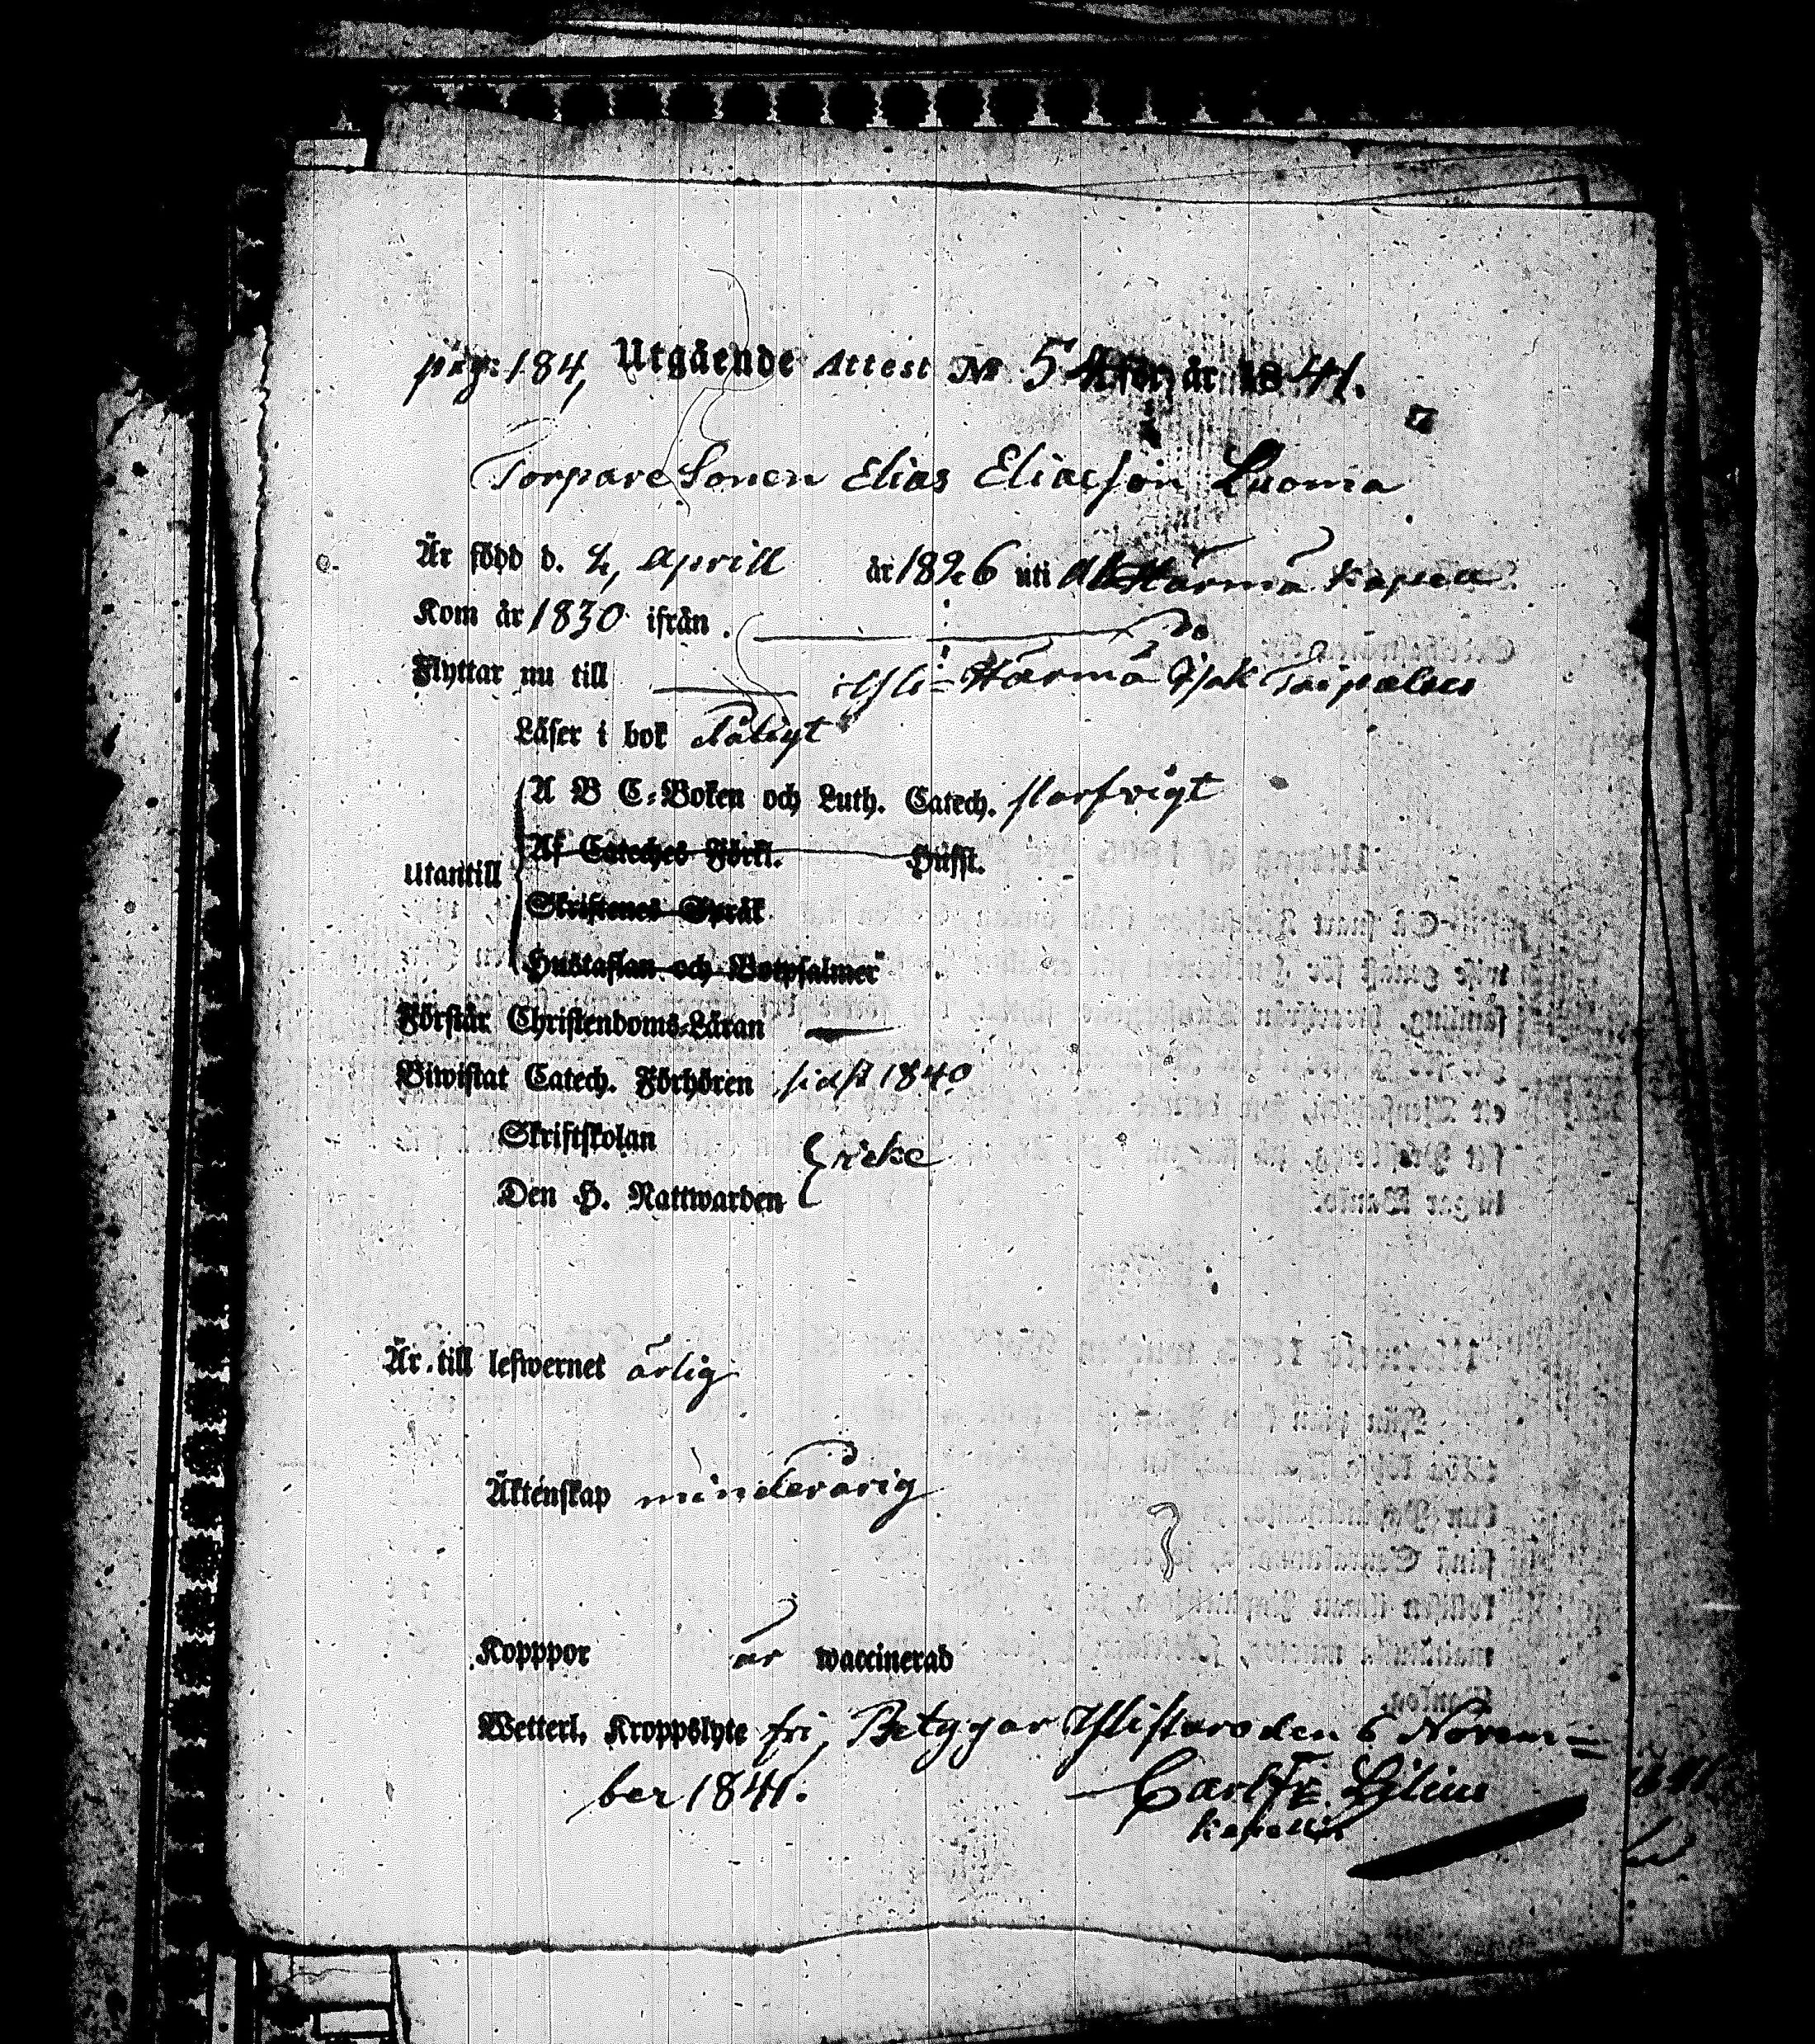 pag: 184, Utgående Attest № 54 för år 1841.
Torpare Sonen Elias Eliasson Luoma
Är född d. 2, Aprill år 1826 uti Alahärmä Kapell
Kom år 1830 ifrån . do
Flyttar nu till Ylihärmä
Läser i bok
A B C-Boken och Luth. Catech. slarfvigt
Af Cateches Förkl. Hufst.
Utantill
Skriftenes Språk
Hustaflan och Botpsalmer
Förstår Christendoms-Läran
Biwistat Catech. Förhören sidst 1840
Skriftskolan
icke
Den H. Nattwarden
Är till lefwernet ärlig
Äktenskap minderårig
Kopppor är waccinerad
Wetterl. Kroppslyte fri, Betygar Ylistaro den 6 Novem=
ber 1841. Carl Fr. Lilius
Kapellan